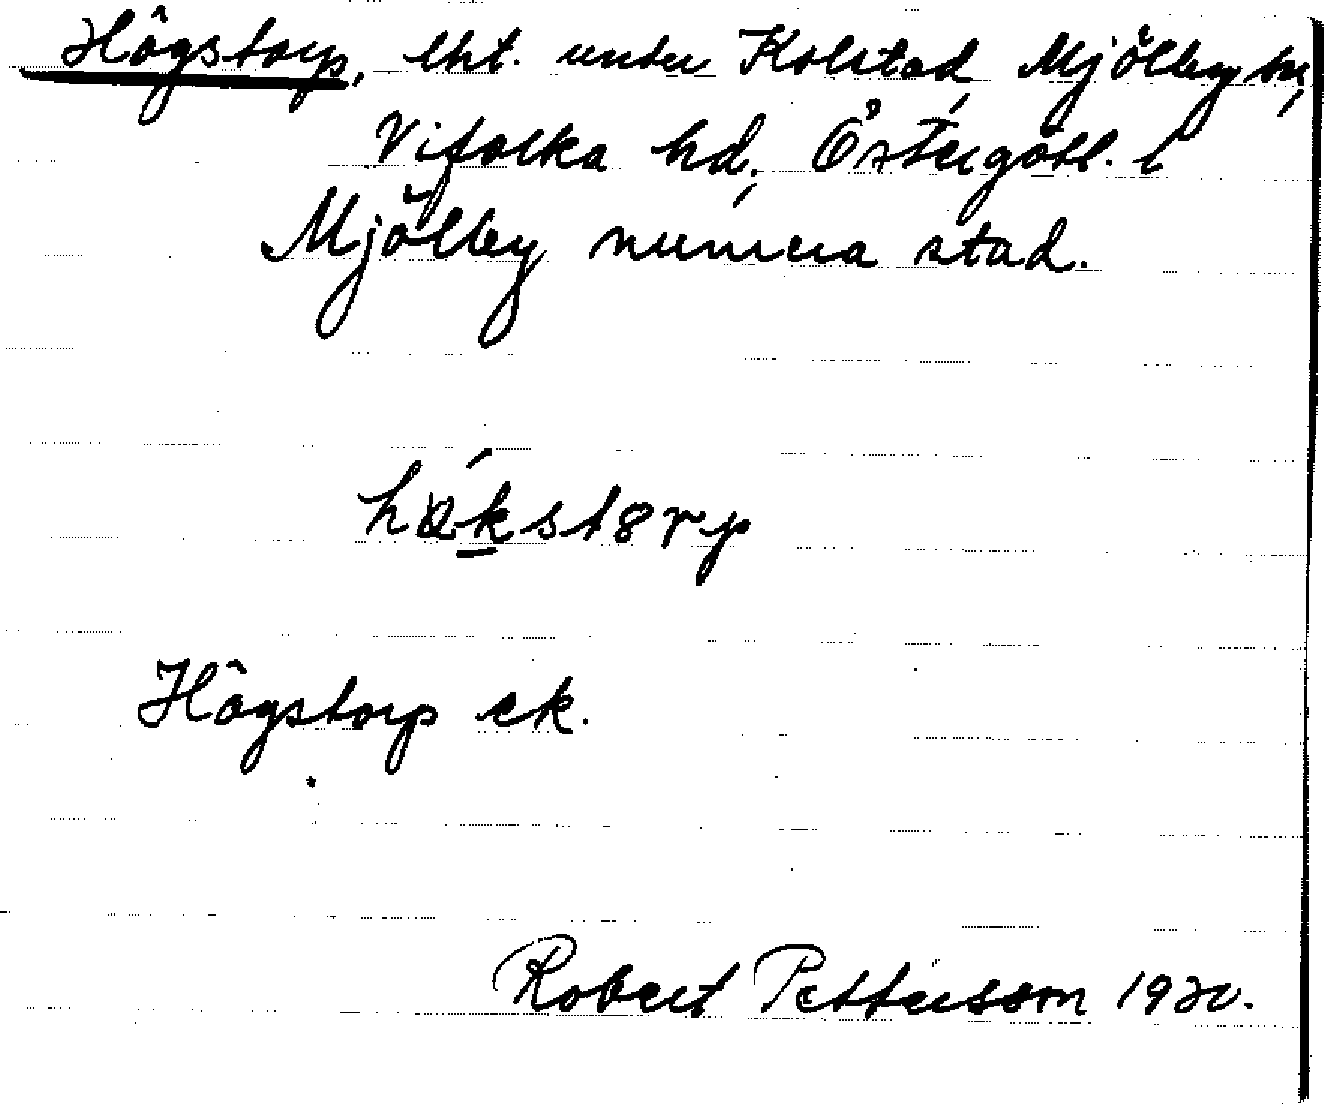 Högstorp, lht. under Kolstad, Mjölby sn,
Vifolka hd, Östergötl. l
Mjölby numera stad.
hö́kst8rp
Högstorp ek.
Robert Pettersson 1920.